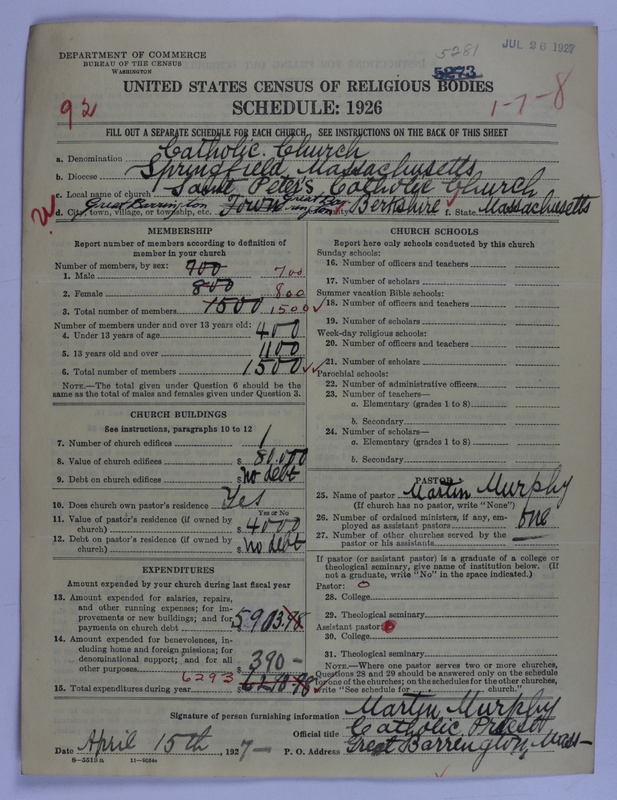 5281
JUL 26 1927
DEPARTMENT OF COMMERCE
BUREAU OF THE CENSUS
WASHINGTON
5273
UNITED STATES CENSUS OF RELIGIOUS BODIES
SCHEDULE: 1926
92
1-7-8
FILL OUT A SEPARATE SCHEDULE FOR EACH CHURCH. SEE INSTRUCTIONS ON THE BACK OF THIS SHEET
a. Denomination Catholic Church
b. Diocese Springfield Massachusetts
c. Local name of church Saint Peter's Catholic Church
d. City, town, village, or township, etc. Great Barrington Town Great Barrington County Berkshire f. State Massachusetts
MEMBERSHIP
Report number of members according to definition of
member in your church
Number of members, by sex:
1. Male 700 700
2. Female 800 800
3. Total number of members 1500 1500
Number of members under and over 13 years old:
4. Under 13 years of age 400
5. 13 years old and over 1100
6. Total number of members 1500
NOTE.—The total given under Question 6 should be the
same as the total of males and females given under Question 3.
CHURCH BUILDINGS
See instructions, paragraphs 10 to 12
7. Number of church edifices 1
8. Value of church edifices $ 80.000
9. Debt on church edifices $ no debt
10. Does church own pastor's residence Yes
Yes or No
11. Value of pastor's residence (if owned by
church) $ 4000
12. Debt on pastor's residence (if owned by
church) $ no debt
EXPENDITURES
Amount expended by your church during last fiscal year
13. Amount expended for salaries, repairs,
and other running expenses; for im-
provements or new buildings; and for
payments on church debt $ 5903.98
14. Amount expended for benevolences, in-
cluding home and foreign missions; for
denominational support; and for all
other purposes $ 390-
6293
15. Total expenditures during year $ 98
CHURCH SCHOOLS
Report here only schools conducted by this church
Sunday schools:
16. Number of officers and teachers
17. Number of scholars
Summer vacation Bible schools:
18. Number of officers and teachers
19. Number of scholars
Week-day religious schools:
20. Number of officers and teachers
21. Number of scholars
Parochial schools:
22. Number of administrative officers
23. Number of teachers—
a. Elementary (grades 1 to 8)
b. Secondary
24. Number of scholars—
a. Elementary (grades 1 to 8)
b. Secondary
PASTOR
25. Name of pastor Martin Murphy
(If church has no pastor, write "None")
26. Number of ordained ministers, if any, em-
ployed as assistant pastors one
27. Number of other churches served by the
pastor or his assistants
If pastor (or assistant pastor) is a graduate of a college or
theological seminary, give name of institution below. (If
not a graduate, write "No" in the space indicated.)
Pastor: 0
28. College
29. Theological seminary
Assistant pastor:
30. College
31. Theological seminary
NOTE.—Where one pastor serves two or more churches,
Questions 28 and 29 should be answered only on the schedule
for one of the churches; on the schedules for the other churches,
write "See schedule for church."
Signature of person furnishing information Martin Murphy
Official title Catholic Priest
Date April 15th, 1927— P. O. Address Great Barrington, Mass—
8-5519a 11-9254a